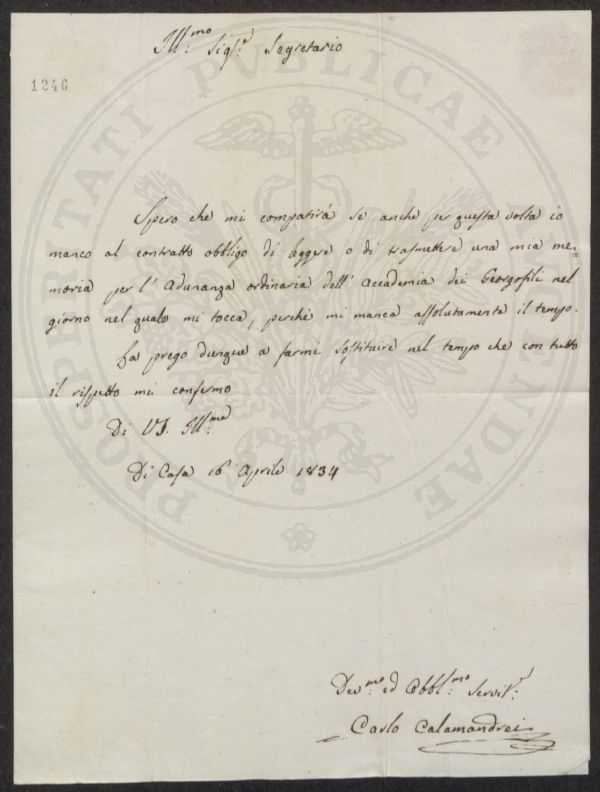 Ill:mo Sig:r Segretario
1246
Spero che mi compatirà se anche per questa volta io
manco al contratto obbligo di leggere o di trasmettere una mia me=
moria per l' Adunanza ordinaria dell' Accademia dei Georgofili nel
giorno nel quale mi tocca, perchè mi manca assolutamente il tempo.
La prego dunque a farmi sostituire nel tempo che con tutto
il rispetto mi confermo
Di VS. Ill:ma
Di Casa 16 Aprile 1834
Dev:mo ed Obbl:mo Servit:r
Carlo Calamandrei
PROSPERITATI PUBLICAE AUGENDAE